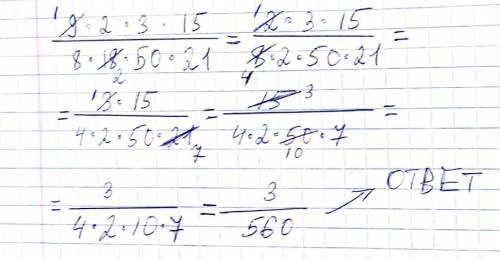 ¹9·2·3·15 / 8·18₂·50·21 = ¹2·3·15 / 8₄·2·50·21 =
= ¹3·15 / 4·2·50·21₇ = 15³ / 4·2·50₁₀·7 =
= 3 / 4·2·10·7 = 3 / 560 → ОТВЕТ